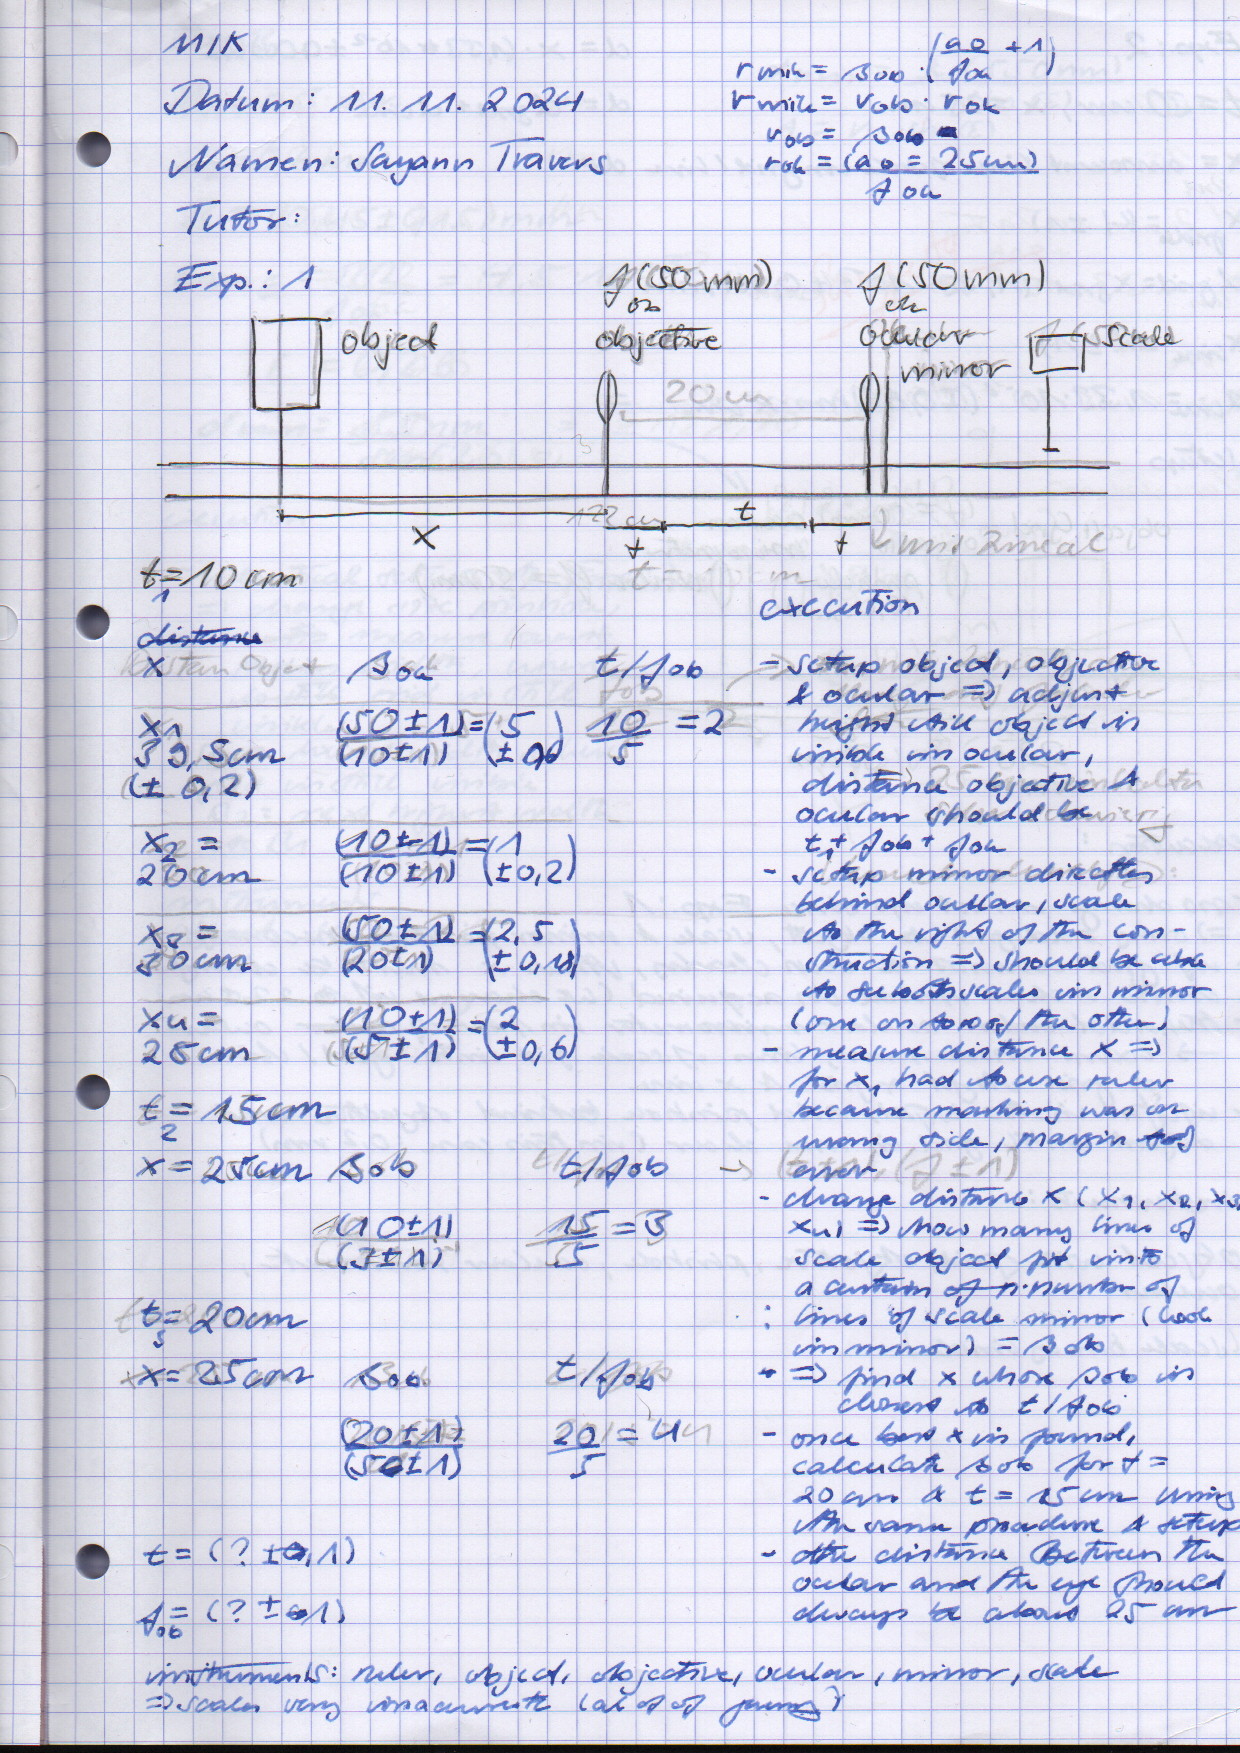 MIK
Datum: 11. 11. 2024
Namen: Sayann Travers
Tutor:
Exp.: 1
r mik = βob · (a0/fok + 1)
r mik = rob · rok
rob = βob =
rok = (a0 = 25cm)/fok
object
fob (50mm)
objective
fok (50mm)
ocular
mirror
scale
20cm
x
t
f
f
mit Lineal
t1 = 10cm
x
βok
t/fob
x1
39,5cm
(± 0,2)
(50±1)/(10±1) = (5 ±0,6)
10/5 = 2
x2 =
20cm
(10±1)/(10±1) = (1 ±0,2)
x3 =
30cm
(50±1)/(20±1) = (2,5 ±0,18)
x4 =
25cm
(10±1)/(5±1) = (2 ±0,6)
t2 = 15cm
x = 25cm βob t/fob → (t±1), (f±1)
(10±1)/(3±1)
15/5 = 3
t3 = 20cm
x = 25cm βob t/fob
(20±1)/(50±1)
20/5 = 4
t = (? ±0,1)
fob = (? ±0,1)
execution
- setup object, objective
& ocular => adjust
height till object is
visible in ocular,
distance objective &
ocular should be
t1 + fob + fok
- setup mirror directly
behind ocular, scale
to the right of the con-
struction => should be able
to see both scales in mirror
(one on top of the other)
- measure distance x =>
for x1 had to use ruler
because marking was on
wrong side, margin of
error
- change distance x (x1, x2, x3,
x4) => how many lines of
scale object fit into
a certain number of
lines of scale mirror (look
in mirror) = βob
- => find x where βob is
closest to t/fob
- once best x is found,
calculate βob for t =
20cm & t = 15cm using
the same procedure & setup
- the distance between the
ocular and the eye should
always be about 25 cm
instruments: ruler, object, objective, ocular, mirror, scale
=> scales very inaccurate (a lot of